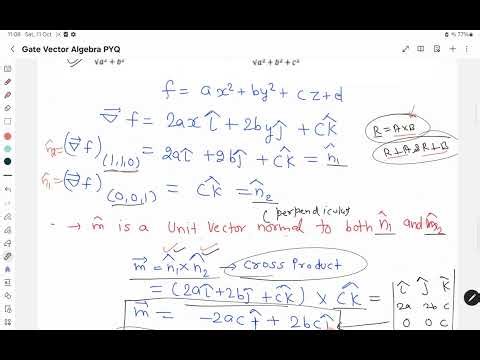 11:08 Sat, 11 Oct
77%
Gate Vector Algebra PYQ
√a² + b² √a² + b² + c²
f = ax² + by² + cz + d
∇⃗f = 2ax î + 2by ĵ + ck̂
R = A×B
n̂₂= (∇⃗f)(1,1,0) = 2aî + 2bĵ + ck̂ = n̂₁
R⊥A & R⊥B
n̂₁= (∇⃗f)(0,0,1) = ck̂ = n̂₂
(perpendicular
→ m̂ is a Unit vector normal to both n̂₁ and n̂₂
m⃗ = n̂₁ × n̂₂ → Cross Product
= (2aî + 2bĵ + ck̂) × ck̂ = | î ĵ k̂ |
2a 2b c
m⃗ = -2ac ĵ + 2bc î
0 0 c